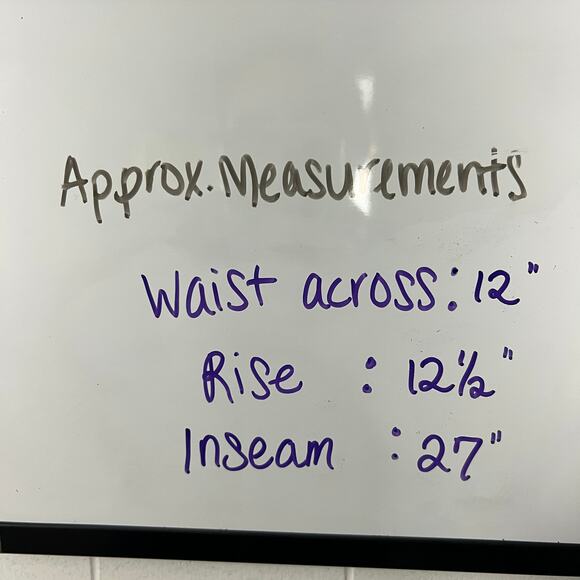 Approx. Measurements
Waist across: 12"
Rise : 12½"
Inseam : 27"